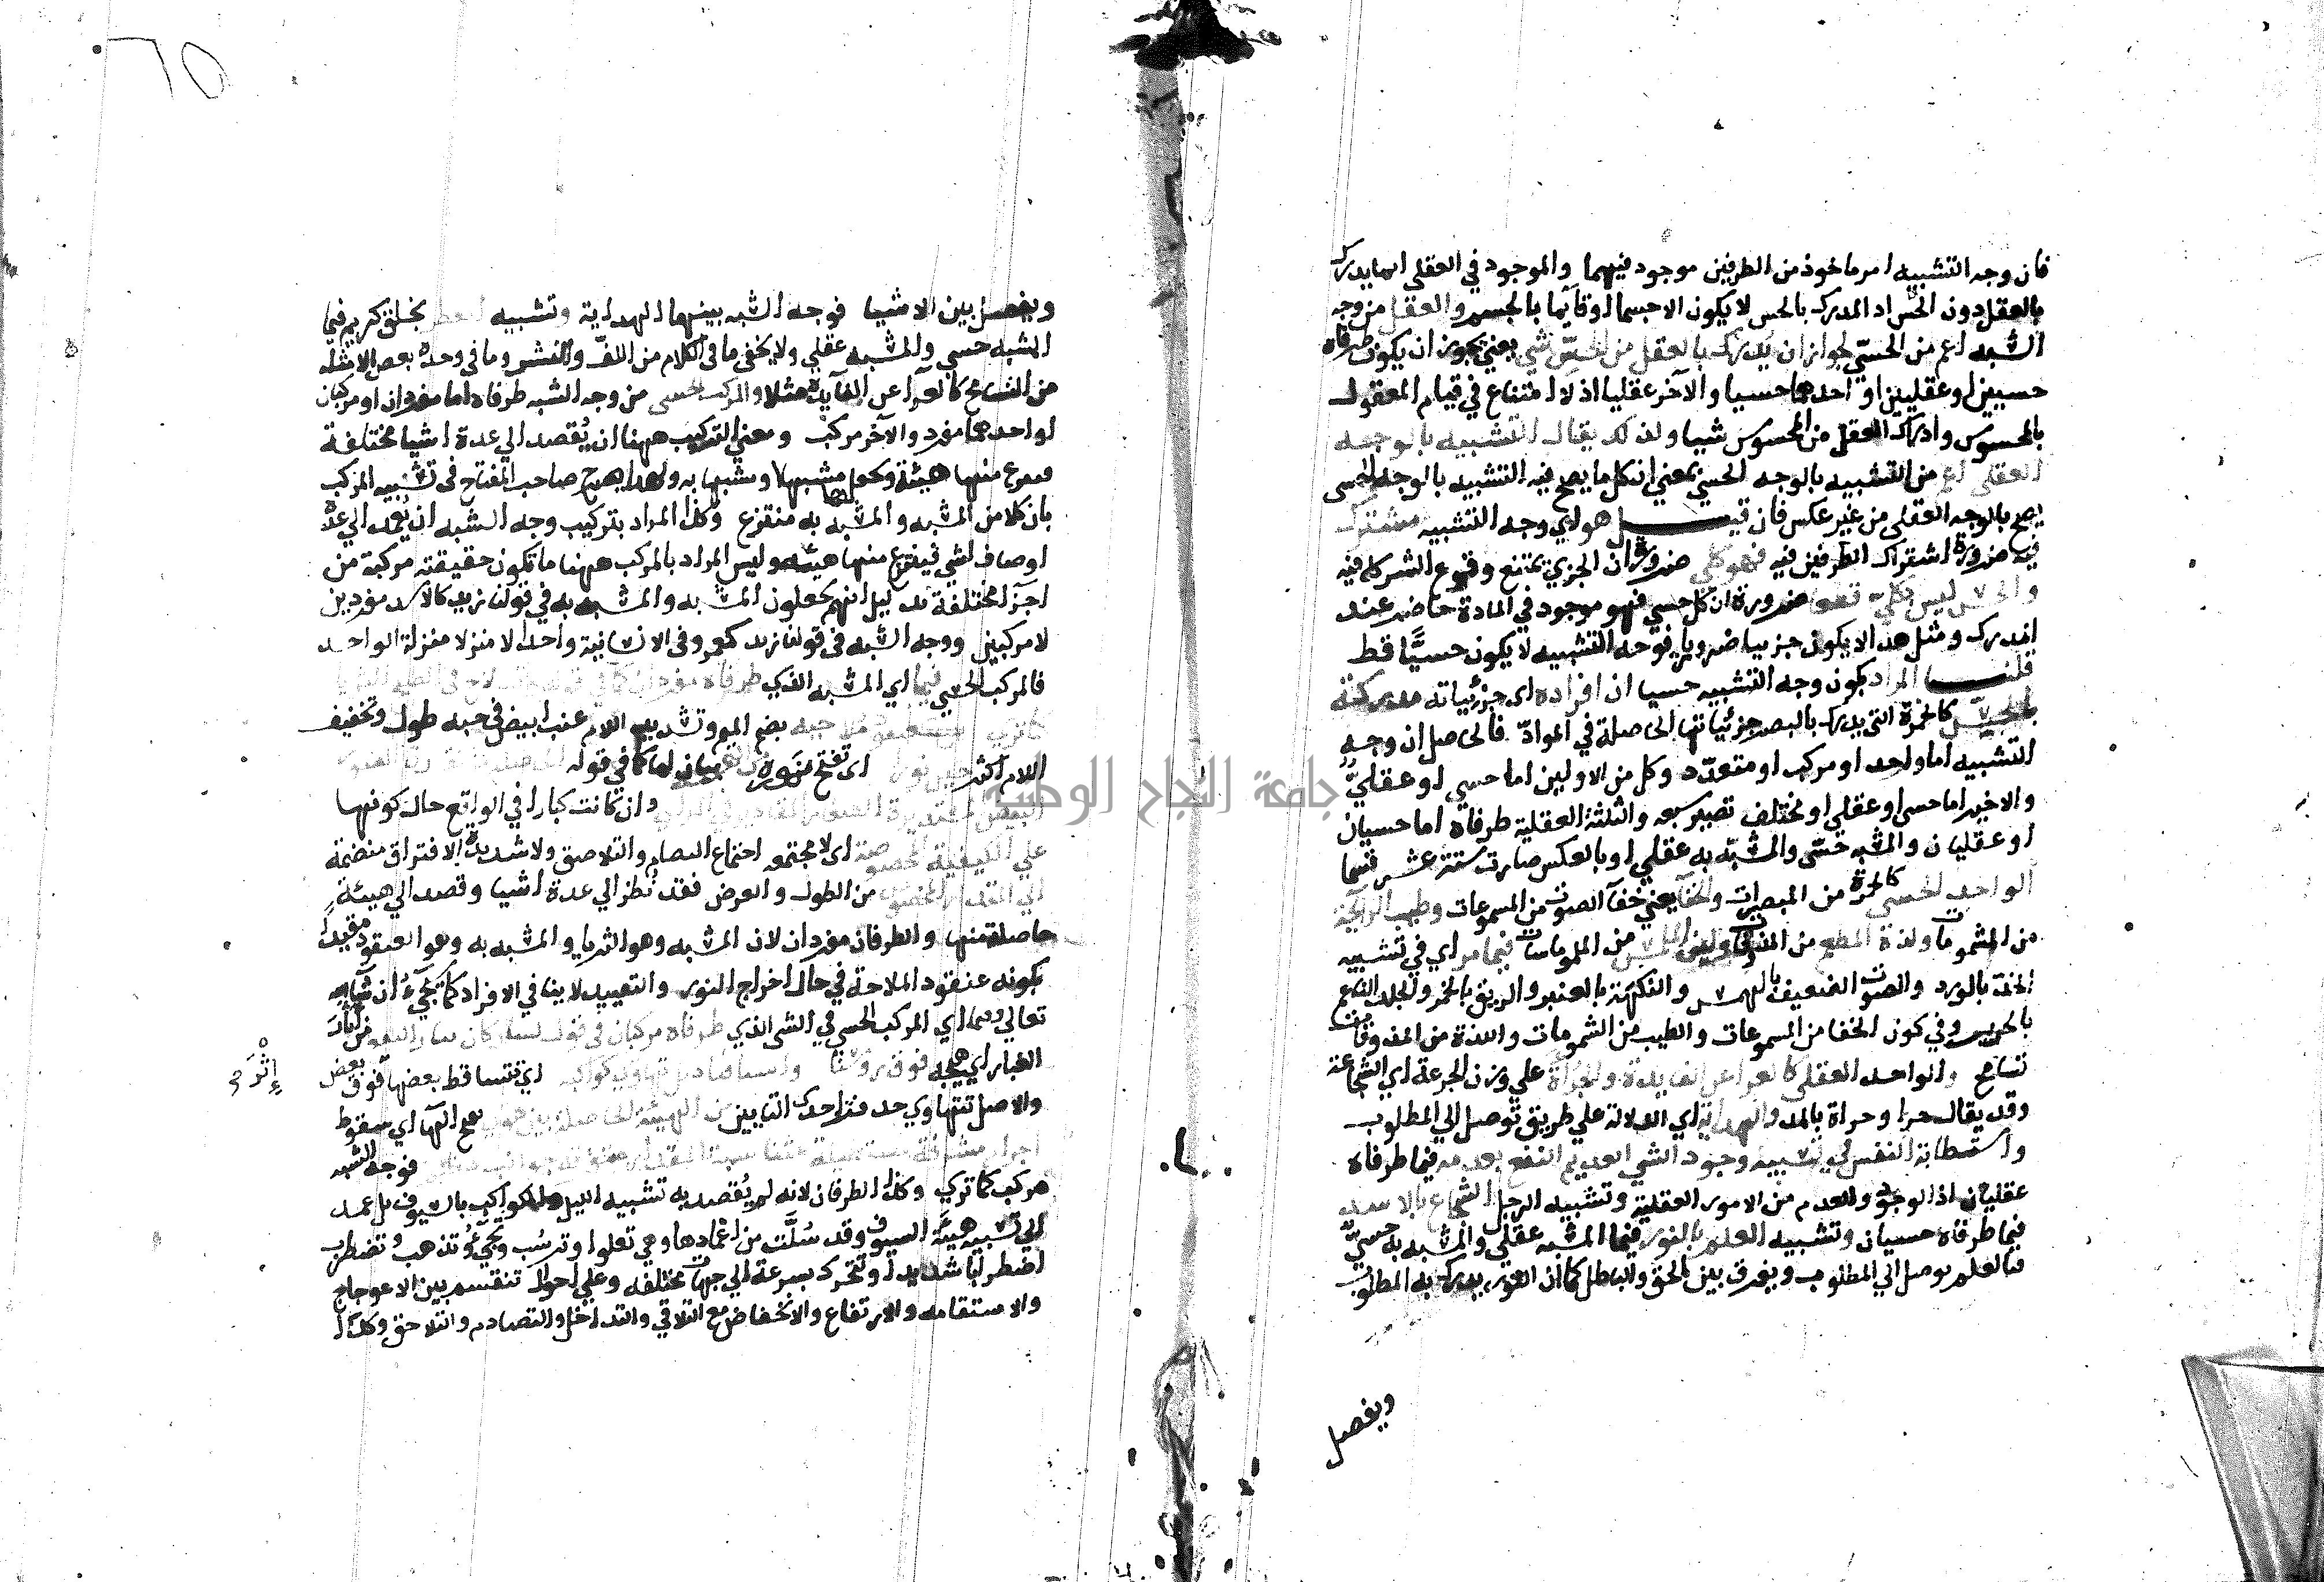 فان وجه التشبيه امر ماخوذ من الطرفين موجود فيهما والموجود في العقلي انما يدرك
بالعقل دون الحس اذ المدرك بالحس لا يكون الا جسما او قايما بالجسم والعقل من وجه
الشبه اعم من الحسي لجواز ان يدرك بالعقل من الحسي شي يعني يجوز ان يكون طرفاه
حسيين او عقليين او احدهما حسيا والآخر عقليا اذ لا امتناع في قيام المعقول
بالمحسوس وادراك العقل من المحسوس شيبا ولذلك يقال التشبيه بالوجه
العقلي اعم من التشبيه بالوجه الحسي بمعني ان كل ما يصح فيه التشبيه بالوجه الحسي
يصح بالوجه العقلي من غير عكس فان قيل هو اي وجه التشبيه مشترك
فيه ضرورة اشتراك الطرفين فيه فهو كلي ضرورة ان الجزي يمتنع وقوع الشركه فيه
والحسي ليس بكلي ضرورة ان كل حسي فهو موجود في المادة حاضر عند
المدرك ومثل هذا لا يكون جزييا ضرورة فوجه التشبيه لا يكون حسيًّا قط
قلنا المراد بكون وجه التشبيه حسيا ان افراده اي جزئياته مدركة
بالحس كالحمرة التي يدرك بالبصر جزئياتها الحاصلة في الموادّ فالحاصل ان وجه
التشبيه اما واحد او مركب او متعدّد وكل من الاولين اما حسي او عقليّ
والاخير اما حسي او عقلي او مختلف تصير سبعه والثلثة العقلية طرفاه اما حسيان
او عقليان والمشبه حسّي والمشبّه به عقلي او بالعكس صارت ستة عشر قسما
الواحد الحسي كالحمرة من المبصرات والخفا يعني خفآ الصوت من المسموعات وطيب الرايحة
من المشمومات ولذة المطعم من المذوقات ولين الملمس من الملموسات فيما مر اي في تشبيه
الخدّ بالورد والصوت الضعيف بالهمس والنكهة بالعنبر والريق بالخمر والجلد الناعم
بالحرير وفي كون الخفا من المسموعات والطيب من الشمومات واللذة من المذوقات
تسامح والواحد العقلي كالعرا عن الفايدة والجرأة علي وزن الجرعة اي الشجاعة
وقد يقال جرا وجراة بالمد والهداية اي الدلالة علي طريق توصل الي المطلوب
واستطابة النفس في تشبيه وجود الشي العديم النفع بعدمه فيما طرفاه
عقليان اذ الوجود والعدم من الامور العقلية وتشبيه الرجل الشجاع بالاسد
فيما طرفاه حسيان وتشبيه العلم بالنور فيما المشبه عقلي والمشبه به حسيّ
فبالعلم يوصل الي المطلوب ويفرق بين الحق والباطل كما ان النور يدرك به المطلوب
ويفصل
ويفصل بين الاشيا فوجه الشبه بينهما الهداية وتشبيه العطر بخلق كريم فيما
المشبه حسي والمشبه عقلي ولا يخفي ما في الكلام من اللفّ والنشر وما في وحدة بعض الامثله
من التسامح كالعرآ عن الفآيدة مثلا والمركب الحسي من وجه الشبه طرفاه اما مفردان او مركبان
او احدهما مفرد والآخر مركب ومعني التركيب ههنا ان يُقصد الي عدة اشيا مختلفة
منها هيئة مشبها ومشبها به ولهذا صرح صاحب المفتاح في تشبيه المركب
بان كلا من المشبه والمشبه به منتزع وكذا المراد بتركيب وجه الشبه ان يعمد الي عدّة
اوصاف لشي فينتزع منها هيئة وليس المراد بالمركب ههنا ما تكون حقيقته مركبة من
اجزآ مختلفة بدليل انهم يجعلون المشبه والمشبه به في قولنا زيد كالاسد مفردين
لا مركبين ووجه الشبه في قولنا زيد كعمرو في الانسانية واحدا لا منزلا منزلة الواحد
فالمركب الحسي فيما اي المشبه الذي طرفاه مفردان كما في قوله
بضم الميم وتشديد اللام عنب ابيض في حبه طول وتخفيف
اللام اكثر حين نورا اي تفتح نوره من بيان لما كما في قوله
وان كانت كبارا في الواقع حال كونها
علي الكيفية المخصوصة اي لا مجتمعه اجتماع التضام والتلاصق ولا شديدة الافتراق منضمة
الي المقدار المخصوص من الطول والعرض فقد نُظر الي عدة اشيا وقصد الي هيئة
حاصلة منها والطرفان مفردان لان المشبه وهو الثريا والمشبه به وهو العنقود مقيدا
بكونه عنقود الملاحة في حال اخراج النور والتقييد لا ينافي الافراد كما يجيءُ ان شآ الله
تعالي وفيما اي المركب الحسي في الشي الذي طرفاه مركبان في قول بشار كان مثار النقع من اثار
الغبار اي هيجه فوق رؤسنا واسيافنا ليل تهاوي كواكبه اي تتساقط بعضها فوق بعض
إِثْرَ
والاصل تتهاوي حذفت احدي التايين من الهيئة الحاصلة من هوي بفتح الهآ اي سقوط
اجرام مشرقة مستطيلة متناسبة المقدار متفرقة فوجه الشبه
مركب كما تري وكذا الطرفان لانه لم يُقصد به تشبيه الليل والكواكب بالسيوف بل عمد
الي تشبيه هيئة السيوف وقد سُلَّت من اغمادها وهي تعلوا وترسُب وتجيءُ وتذهبُ وتضطرب
اضطرابا شديدا وتتحرك بسرعة الي جهات مختلفه وعلي احوال تنقسم بين الاعوجاج
والاستقامه والارتفاع والانخفاض مع التلاقي والتداخل والتصادم والتلاحق وكذا
جامعة النجاح الوطنية